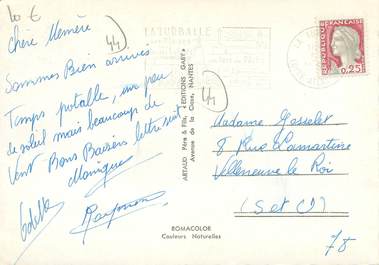 10 €
44
Chère Mémère
Sommes Bien arrivés
Temps potable, un peu
de soleil mais beaucoup de
Vent Bons Baisers lettre suit
Monique
Odette
Raymond
LA TURBALLE
REPUBLIQUE FRANÇAISE
0,25F
44
ARTAUD Père & Fils, "EDITIONS GABY"
Avenue de la Close, NANTES
Madame Gosselet
8 Rue Lamartine
Villeneuve le Roi
(S et O)
78
ROMACOLOR
Couleurs Naturelles